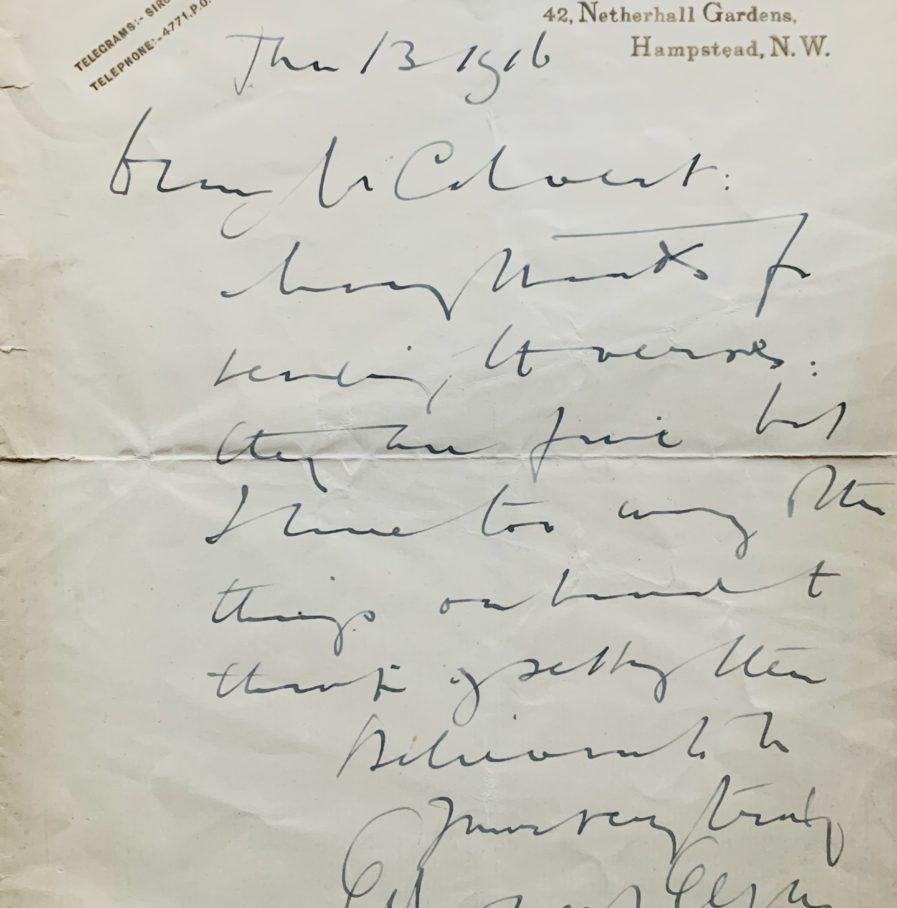 TELEGRAMS:- SIRO
TELEPHONE:- 4771, P.O.
42, Netherhall Gardens,
Hampstead, N. W.
Jan 13 1916
Dear Mr Calvert:
Many thanks for
sending the verses:
they are fine but
I have too many other
things on hand to
think of setting them
Believe me to be
Yours very truly
Edward Elgar